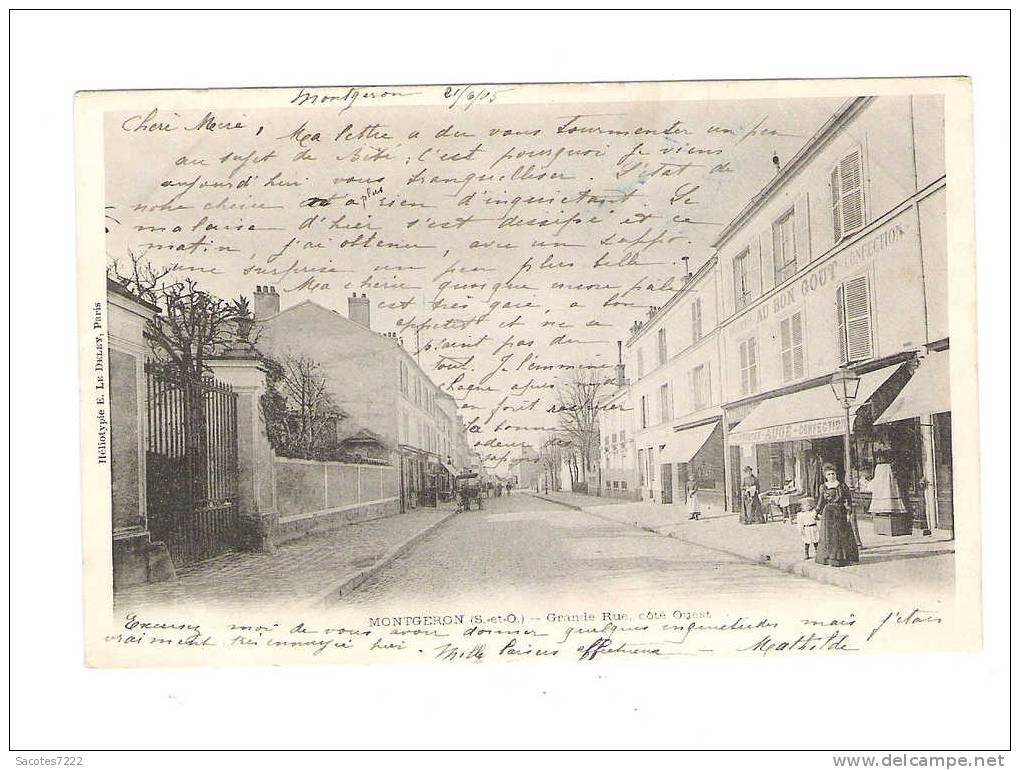 Montgeron 21/6/05
Chère Mère, Ma lettre a du vous tourmenter un peu
au sujet de Bébé ; c'est pourquoi je viens
aujourd'hui vous tranquelliser. L'état de
notre chérie n'a plus rien d'inquiétant. Le
malaise d'hier s'est dessipé et ce
matin, j'ai obtenu, avec un suppo.
une surprise un peu plus belle.
Ma chérie quoique encore pâle
est très gaie a bon
appétit et ne se
plaint pas du
tout. Je l'emmène
chaque après
en forêt respirer
la bonne
odeur des
sap.
Héliotypie E. Le Deley, Paris
AU BON GOUT - CONFECTION
AUGÉ - CONFECTION
MONTGERON (S.-et-O.) - Grande Rue, côté Ouest
Excusez moi de vous avoir donner quelques inquiétudes mais j'étais
vraiment très ennuyée hier. Mille baisers affectueux - Mathilde
Sacotes7222
www.delcampe.net